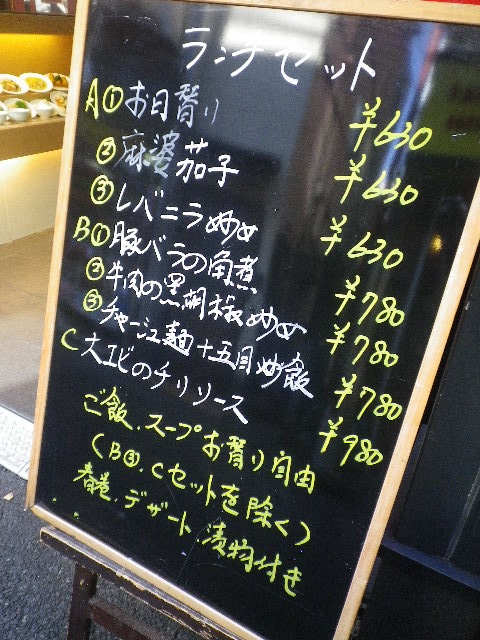 ランチセット
A①お日替り ¥630
②麻婆茄子 ¥630
③レバニラ炒め ¥630
B①豚バラの角煮 ¥780
②牛肉の黒胡椒炒め ¥780
③チャーシュー麺+五目炒飯 ¥780
C大エビのチリソース ¥980
ご飯、スープお替り自由
(B③、Cセットを除く)
春巻、デザート、漬物付き